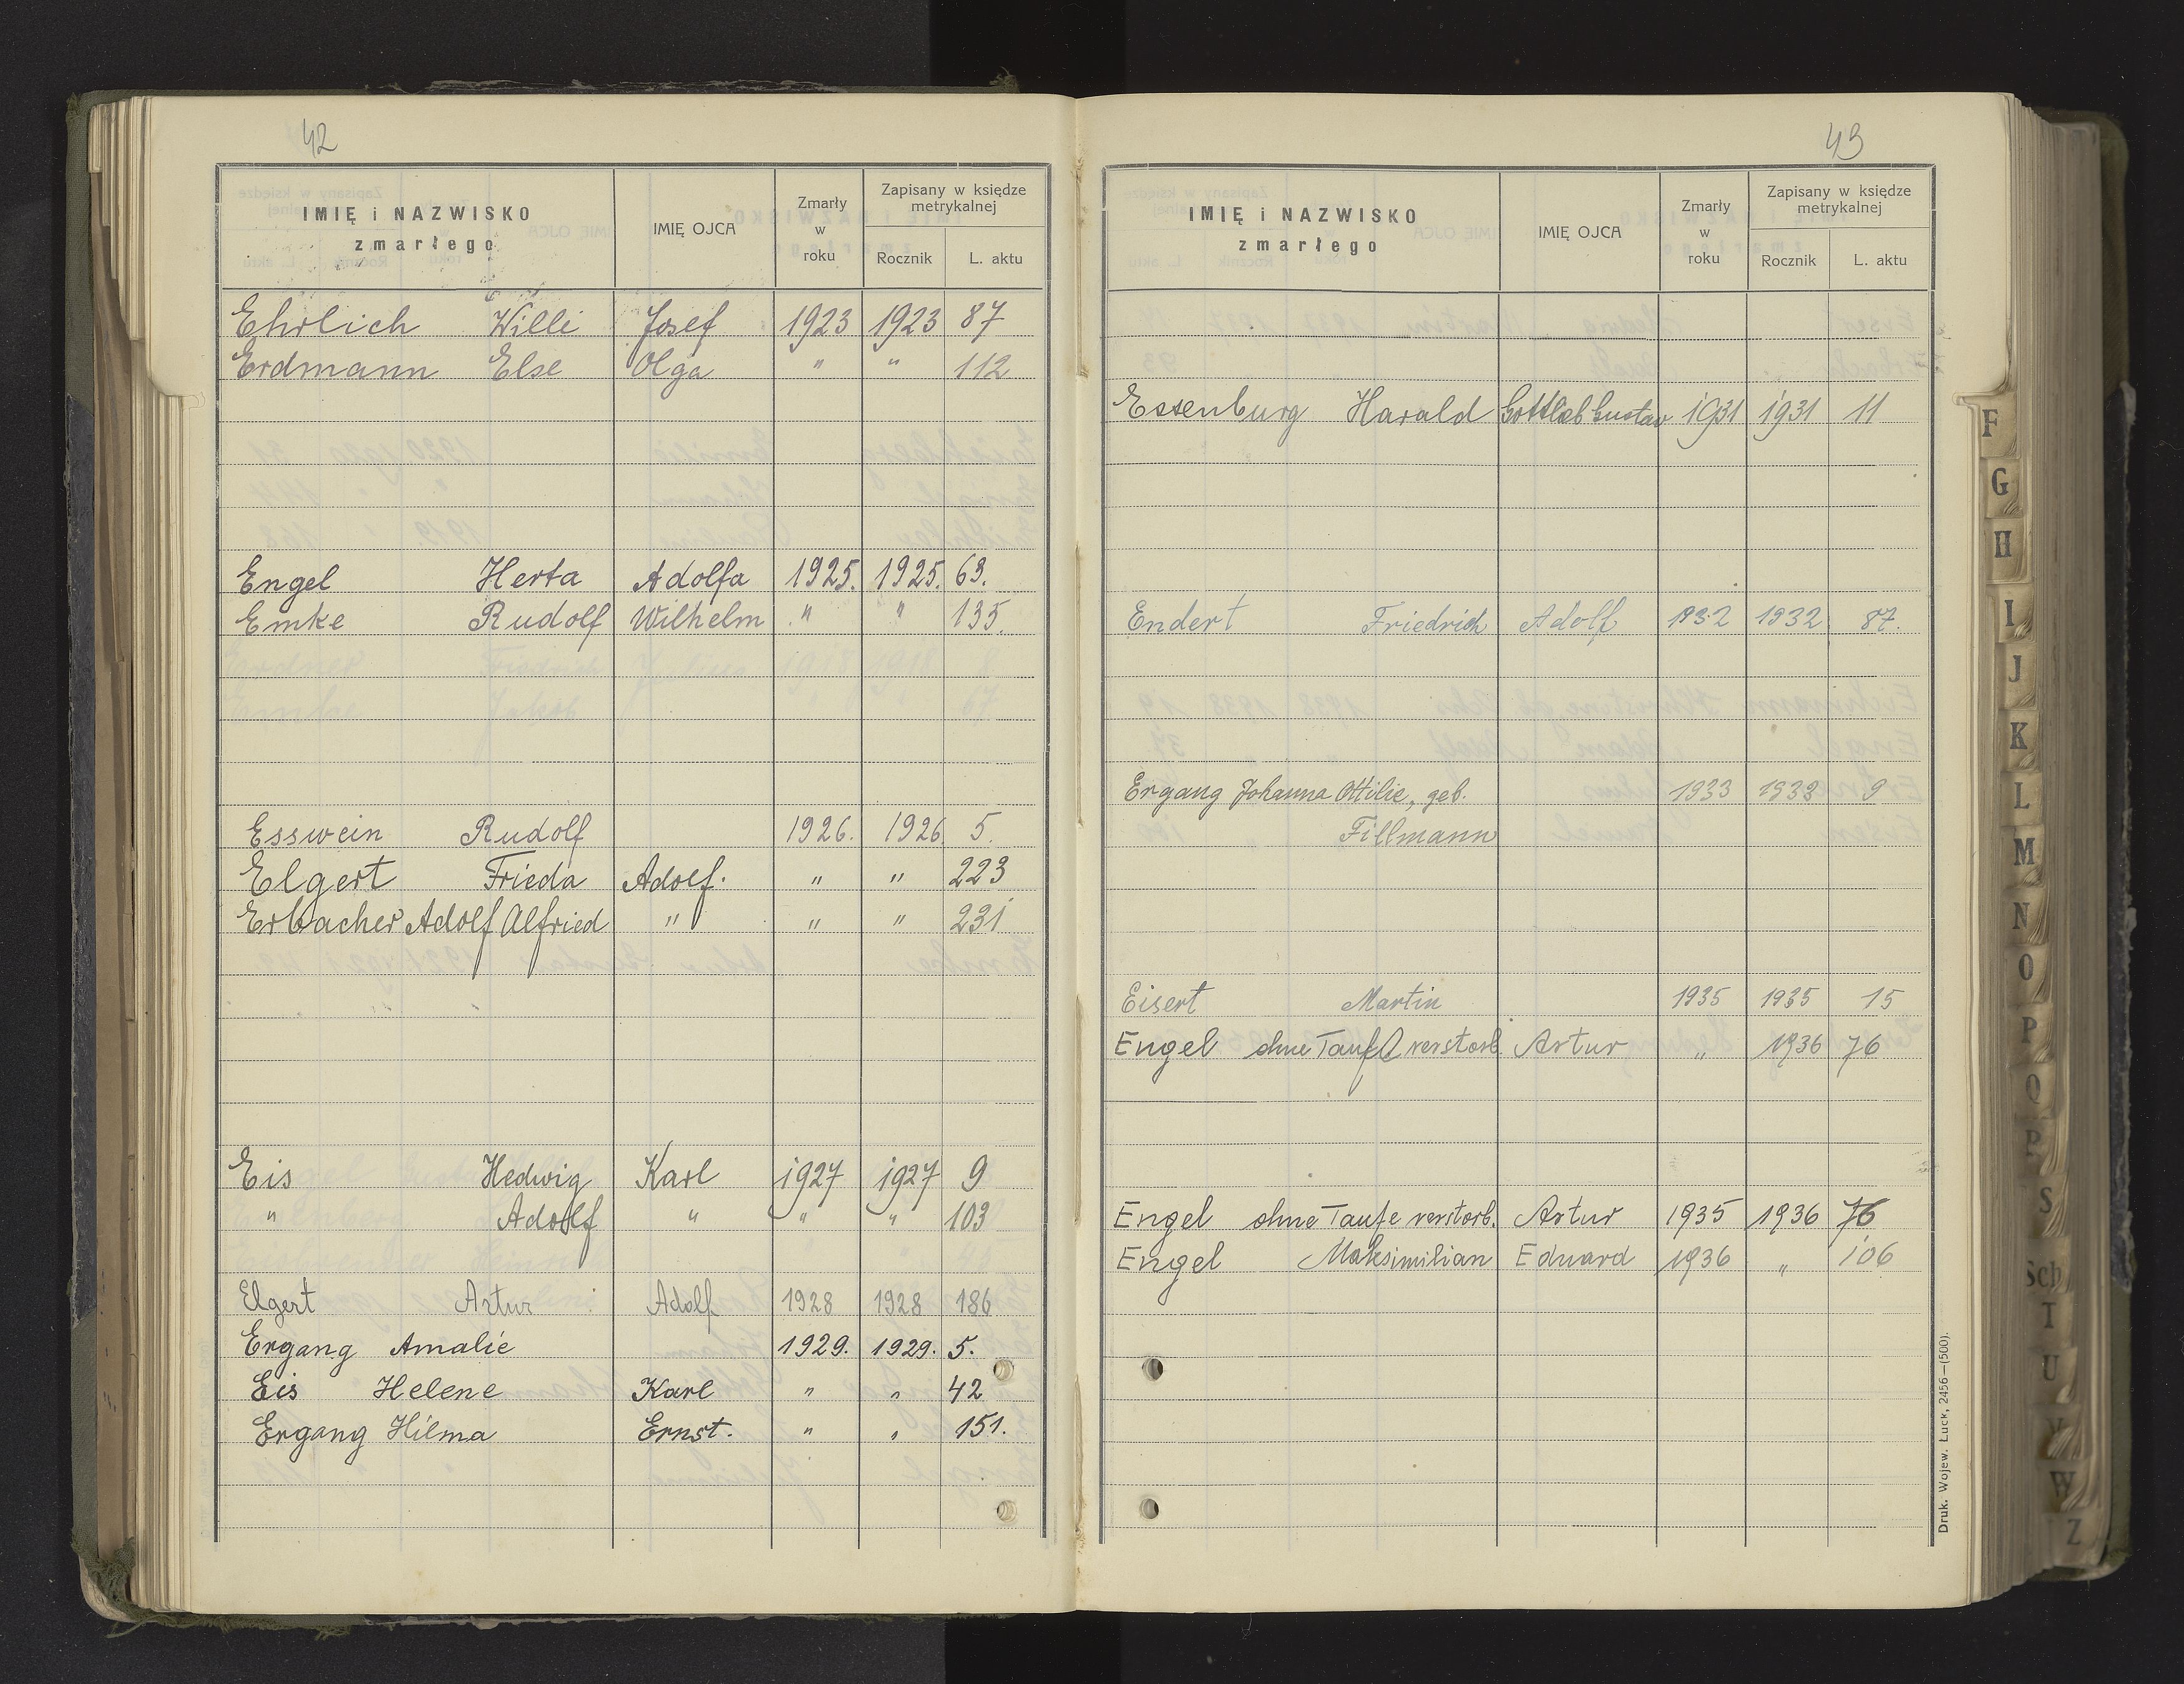 42
IMIĘ i NAZWISKO zmarłego IMIĘ OJCA Zmarły w roku Zapisany w księdze metrykalnej
Rocznik L. aktu
Ehrlich Willi Josef 1923 1923 87
Erdmann Else Olga " " 112
Engel Herta Adolfa 1925. 1925. 63.
Emke Rudolf Wilhelm " " 135.
Erdner Friedrich Julius 1918 1918 8
Emke Jakob " " 67
Esswein Rudolf 1926. 1926. 5.
Elgert Frieda Adolf. " " 223
Erbacher Adolf Alfried " " " 231
Eis Hedwig Karl 1927 1927 9
" Adolf " " " 103
Elgert Artur Adolf 1928 1928 186
Ergang Amalie 1929. 1929. 5.
Eis Helene Karl " " 42
Ergang Hilma Ernst. " " 151.
43
IMIĘ i NAZWISKO zmarłego IMIĘ OJCA Zmarły w roku Zapisany w księdze metrykalnej
Rocznik L. aktu
Essenburg Harald Gottlieb Gustav 1931 1931 11
Endert Friedrich Adolf 1932 1932 87.
Ergang Johanna Ottilie, geb. 1933 1933 9
Fillmann
Eisert Martin 1935 1935 15
Engel ohne Taufe verstorb. Artur " 1936 76
Engel ohne Taufe verstorb. Artur 1935 1936 76
Engel Maksimilian Eduard 1936 " 106
Druk. Wojew. Łuck, 2456—(500).
F
G
H
I
J
K
L
M
N
O
P
Q
R
S
Sch
T
U
V
W
Z